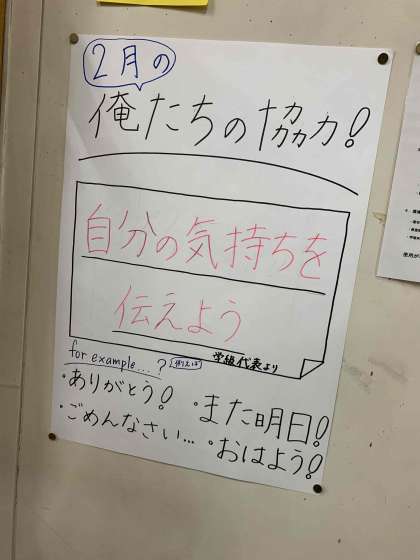 2月の
俺たちの協力!
自分の気持ちを
伝えよう
学級代表より
for example...? 例えば
・ありがとう!
・また明日!
・ごめんなさい...
・おはよう!